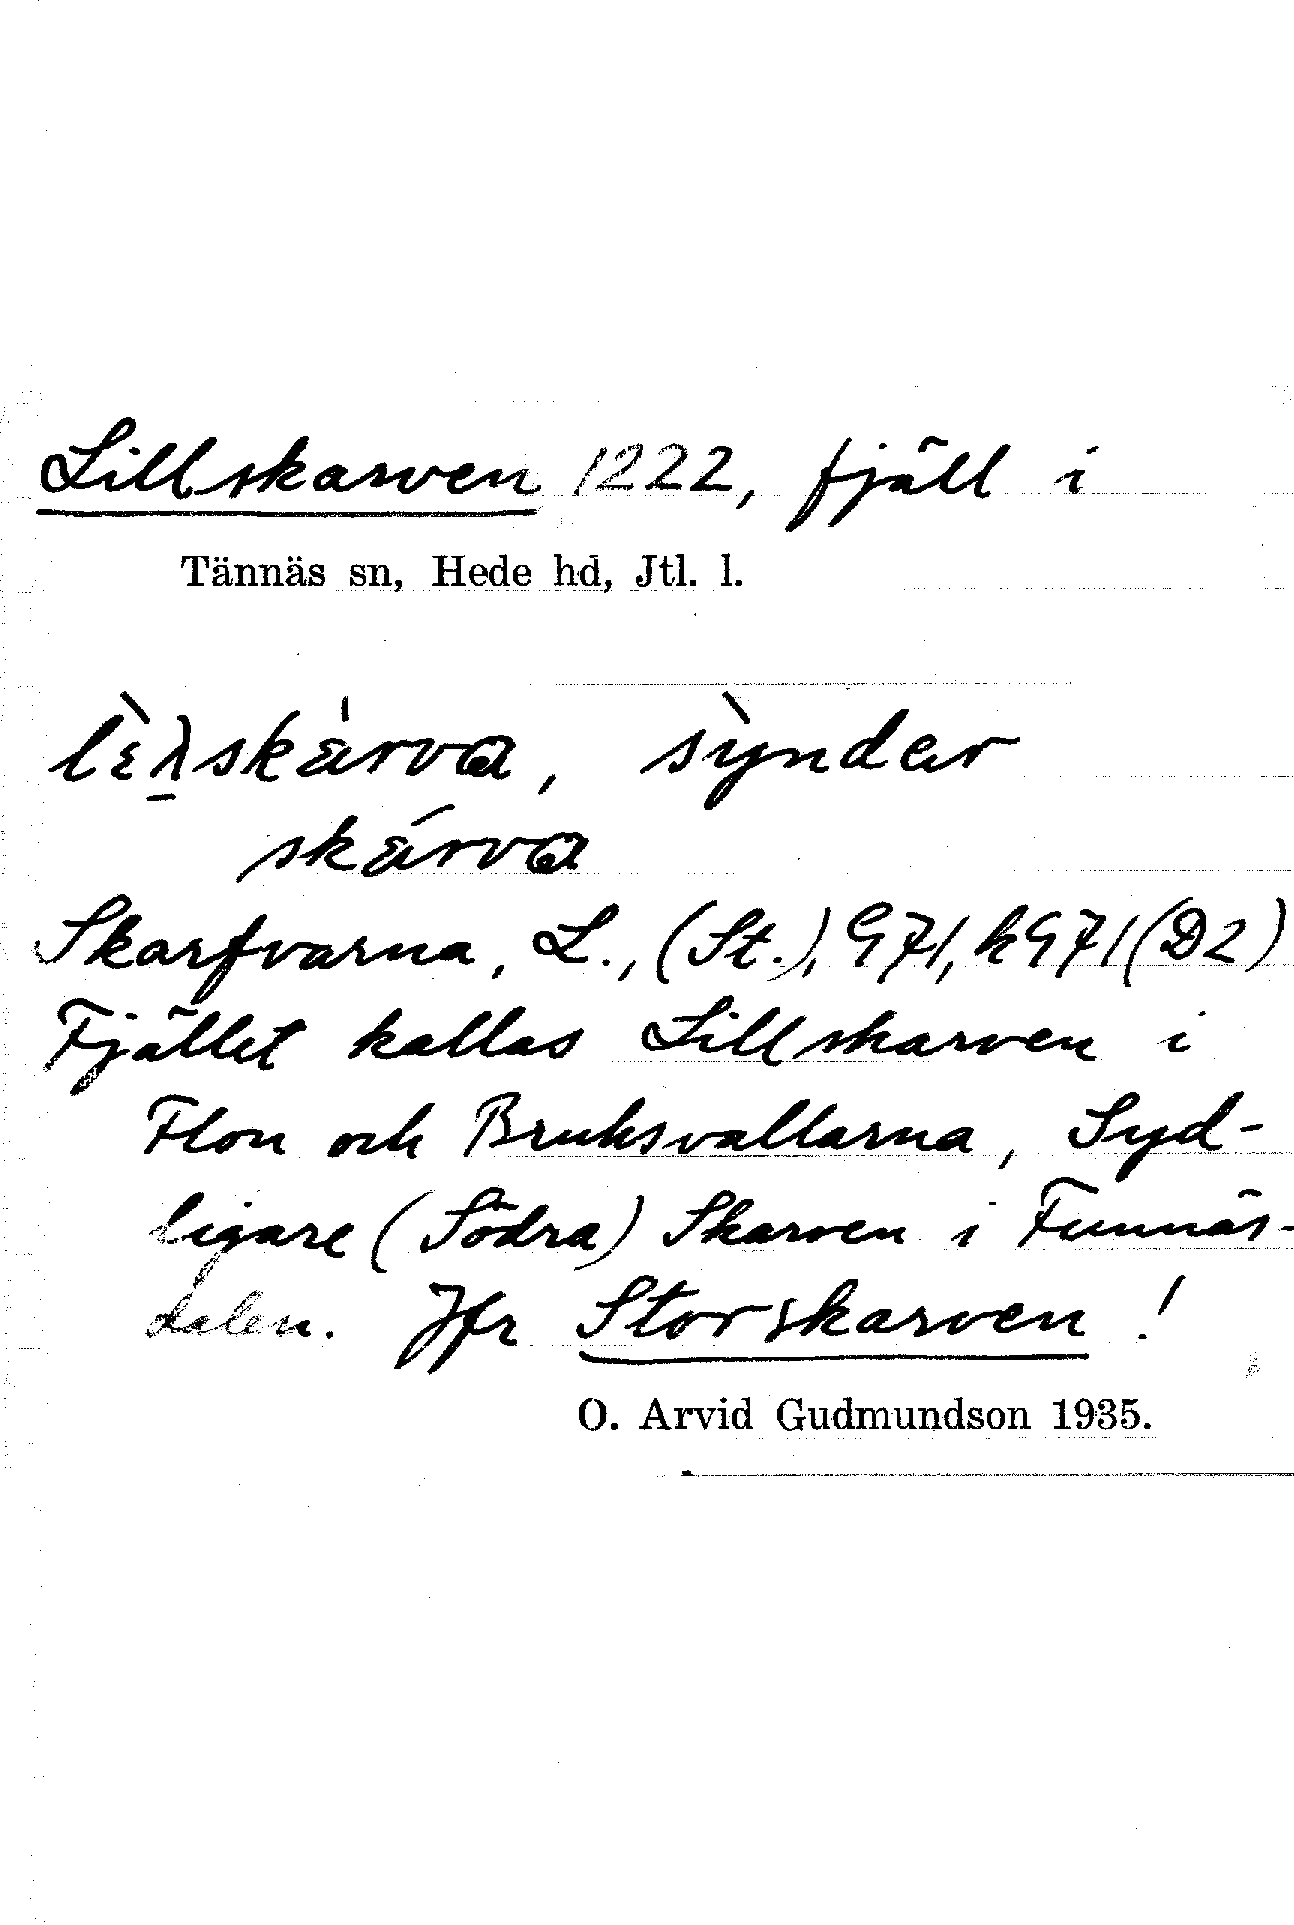 Lillskarven 1222, fjäll i
Tännäs sn, Hede hd, Jtl. l.
skárva
Skarfvarna, L., (St.), G71, hG71 (D2)
Fjället kallas Lillskarven i
Flon och Bruksvallarna, Syd-
ligare (Södra) Skarven i Funnäs-
dalen. Jfr Storskarven!
O. Arvid Gudmundson 1935.